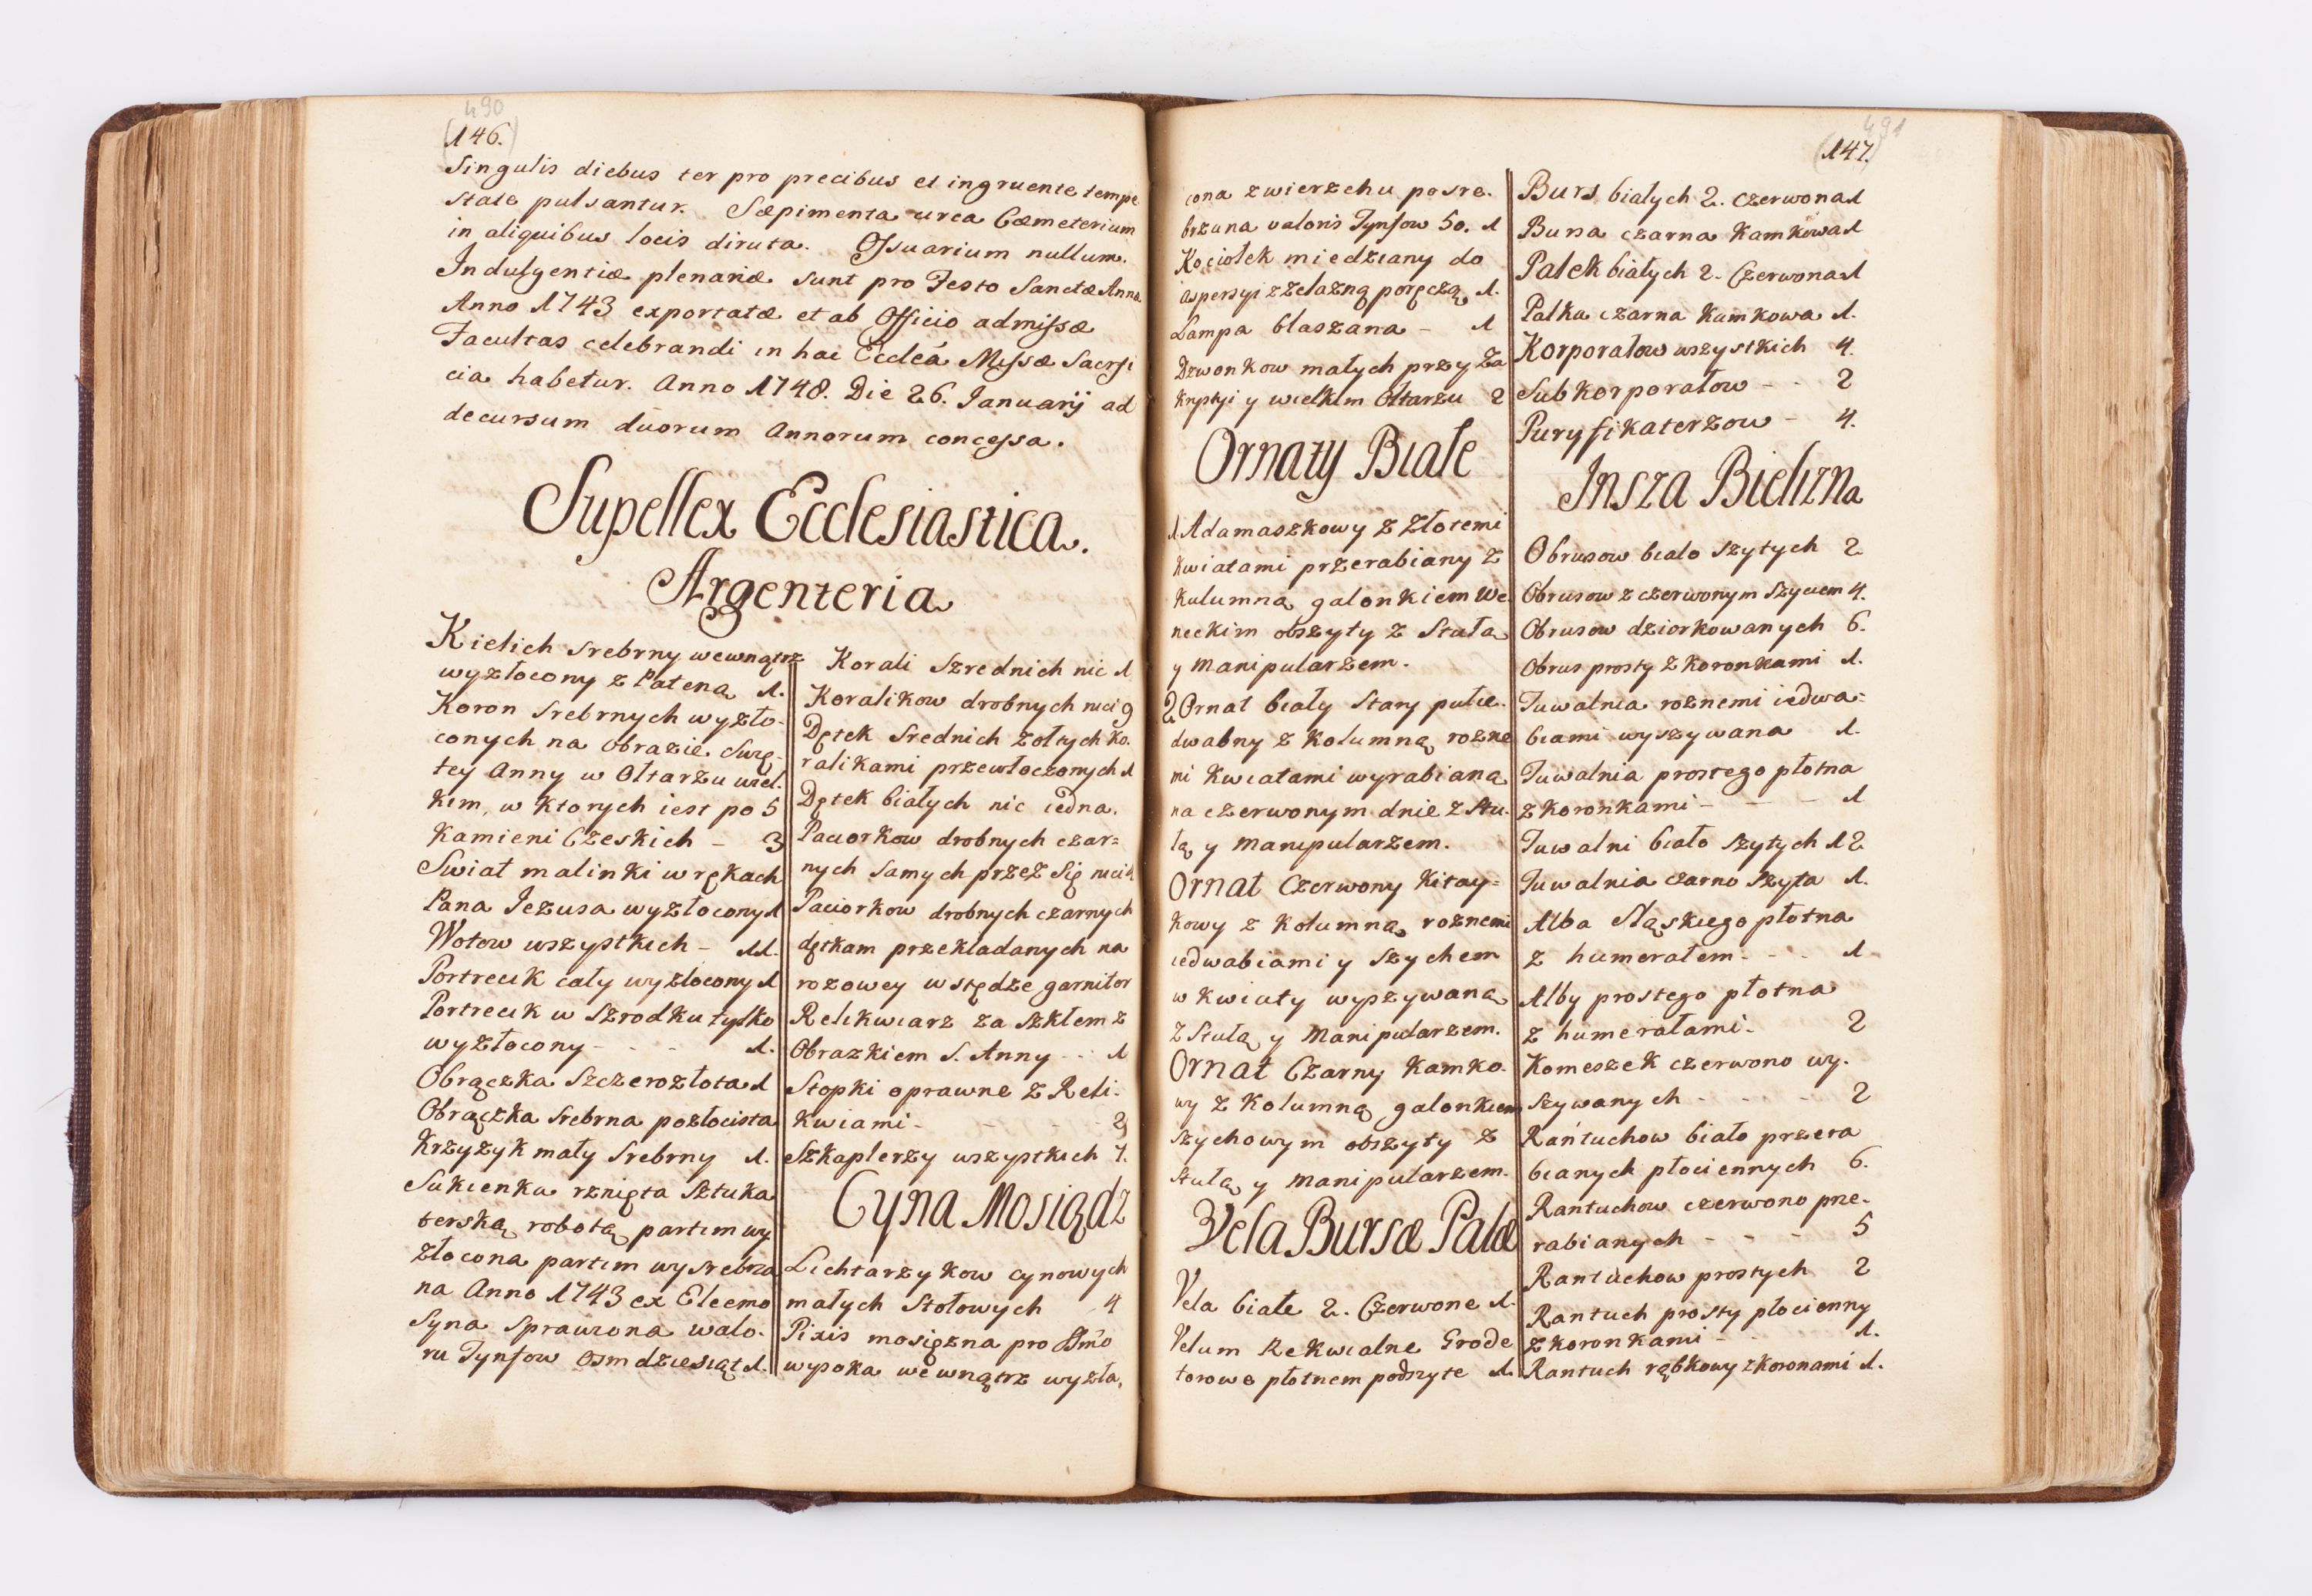 490
146.
Singulis diebus ter pro precibus et ingruente tempe
state pulsantur. Sæpimenta circa Cæmeterium
in aliquibus locis diruta. Ossuarium nullum.
Indulgentiæ plenariæ sunt pro Festo Sanctæ Annæ
Anno 1743 exportatæ et ab Officio admissæ
Facultas celebrandi in hac Eccleá Missæ Sacrifi
cia habetur. Anno 1748. Die 26. Januarij ad
decursum duorum Annorum concessa.
Supellex Ecclesiastica.
Argenteria
Kielich srebrny wewnątrz
wyzłocony z Pateną 1.
Koron srebrnych wyzło-
conych na obrazie Swię-
tey Anny w Ołtarzu wiel.
kim, w ktorych iest po 5
Kamieni Czeskich - 3
Swiat malinki w rękach
Pana Jezusa wyzłocony 1
Wotow wszystkich - 11.
Portrecik cały wyzłocony 1
Portrecik w szrodku tylko
wyzłocony - - - 1.
Obrączka szczerozłota 1
Obrączka srebrna pozłocista
Krzyzyk mały srebrny 1.
Sukienka rznięta Sztuka
terską robotą partim wy
złocona partim wysrebrza
na Anno 1743 ex Eleemo
syna sprawiona walo-
ru Tynfow osmdziesiąt 1.
Korali szrednich nic 1
Koralikow drobnych nici 9
Dętek srednich zołtych ko.
ralikami przewłoczonych 1
Dętek białych nic iedna.
Paciorkow drobnych czar=
nych samych przez się nici
Paciorkow drobnych czarnych
dętkam przekladanych na
rozowey wstędze garnitor
Relikwiarz za szkłem z
Obrazkiem S. Anny - - 1
Stopki oprawne z Reli-
kwiami - - - - 2
Szkaplerzy wszystkich 7.
Cyna Mosiądz
Lichtarzykow cynowych
małych stołowych 4
Pixis mosięzna pro SSmo
wysoka wewnątrz wyzła,
491
147.
cona zwierzchu posre.
brzana valoris Tynfow 50. 1
Kociołek miedziany do
aspersyi z zelazną poręczą 1.
Lampa blaszana - 1
Dzwonkow małych przy Za
krystyi y wielkim Ołtarzu 2
Ornaty Białe
1 Adamaszkowy z złotemi
kwiatami przerabiany z
kulumną galonkiem We
neckim obszyty z Stuła
y Manipularzem.
2 Ornat biały stary pułie.
dwabny z kolumną rozne
mi kwiatami wyrabianą
na czerwonym dnie z Stu.
łą y Manipularzem.
Ornat Czerwony Kitay=
kowy z kolumną roznemi
iedwabiami y szychem
w kwiaty wyszywaną
z Stułą y Manipularzem.
Ornat Czarny Kamko-
wy z kolumną galonkiem
szychowym obszyty z
Stułą y Manipularzem.
Vela Bursæ Palæ
Vela białe 2. Czerwone 1.
Velum Rekwialne Grode
torowe płotnem podszyte 1.
Burs białych 2. czerwona 1
Bursa czarna kamkowa 1
Palek białych 2. Czerwona 1
Palka czarna kamkowa 1.
Korporałow wszystkich 4.
Subkorporałow - - 2
Puryfikaterzow - 4.
Insza Bielizna
Obrusow biało szytych 2
Obrusow z czerwonym szyciem 4.
Obrusow dziorkowanych 6.
Obrus prosty z koronkami 1.
Tuwalnia roznemi iedwa=
biami wyszywana 1.
Tuwalnia prostego płotna
z koronkami - - - 1
Tuwalni biało szytych 12
Tuwalnia czarno szyta 1.
Alba Sląskiego płotna
z humerałem - - - 1
Alby prostego płotna
z humerałami - 2
Komeszek czerwono wy.
szywanych - - - - 2
Rańtuchow biało przera
bianych płociennych 6.
Rantuchow czerwono prze-
rabianych - - - 5
Rantuchow prostych 2
Rantuch prosty płocienny
z koronkami - - 1.
Rantuch rąbkowy z koronami 1.